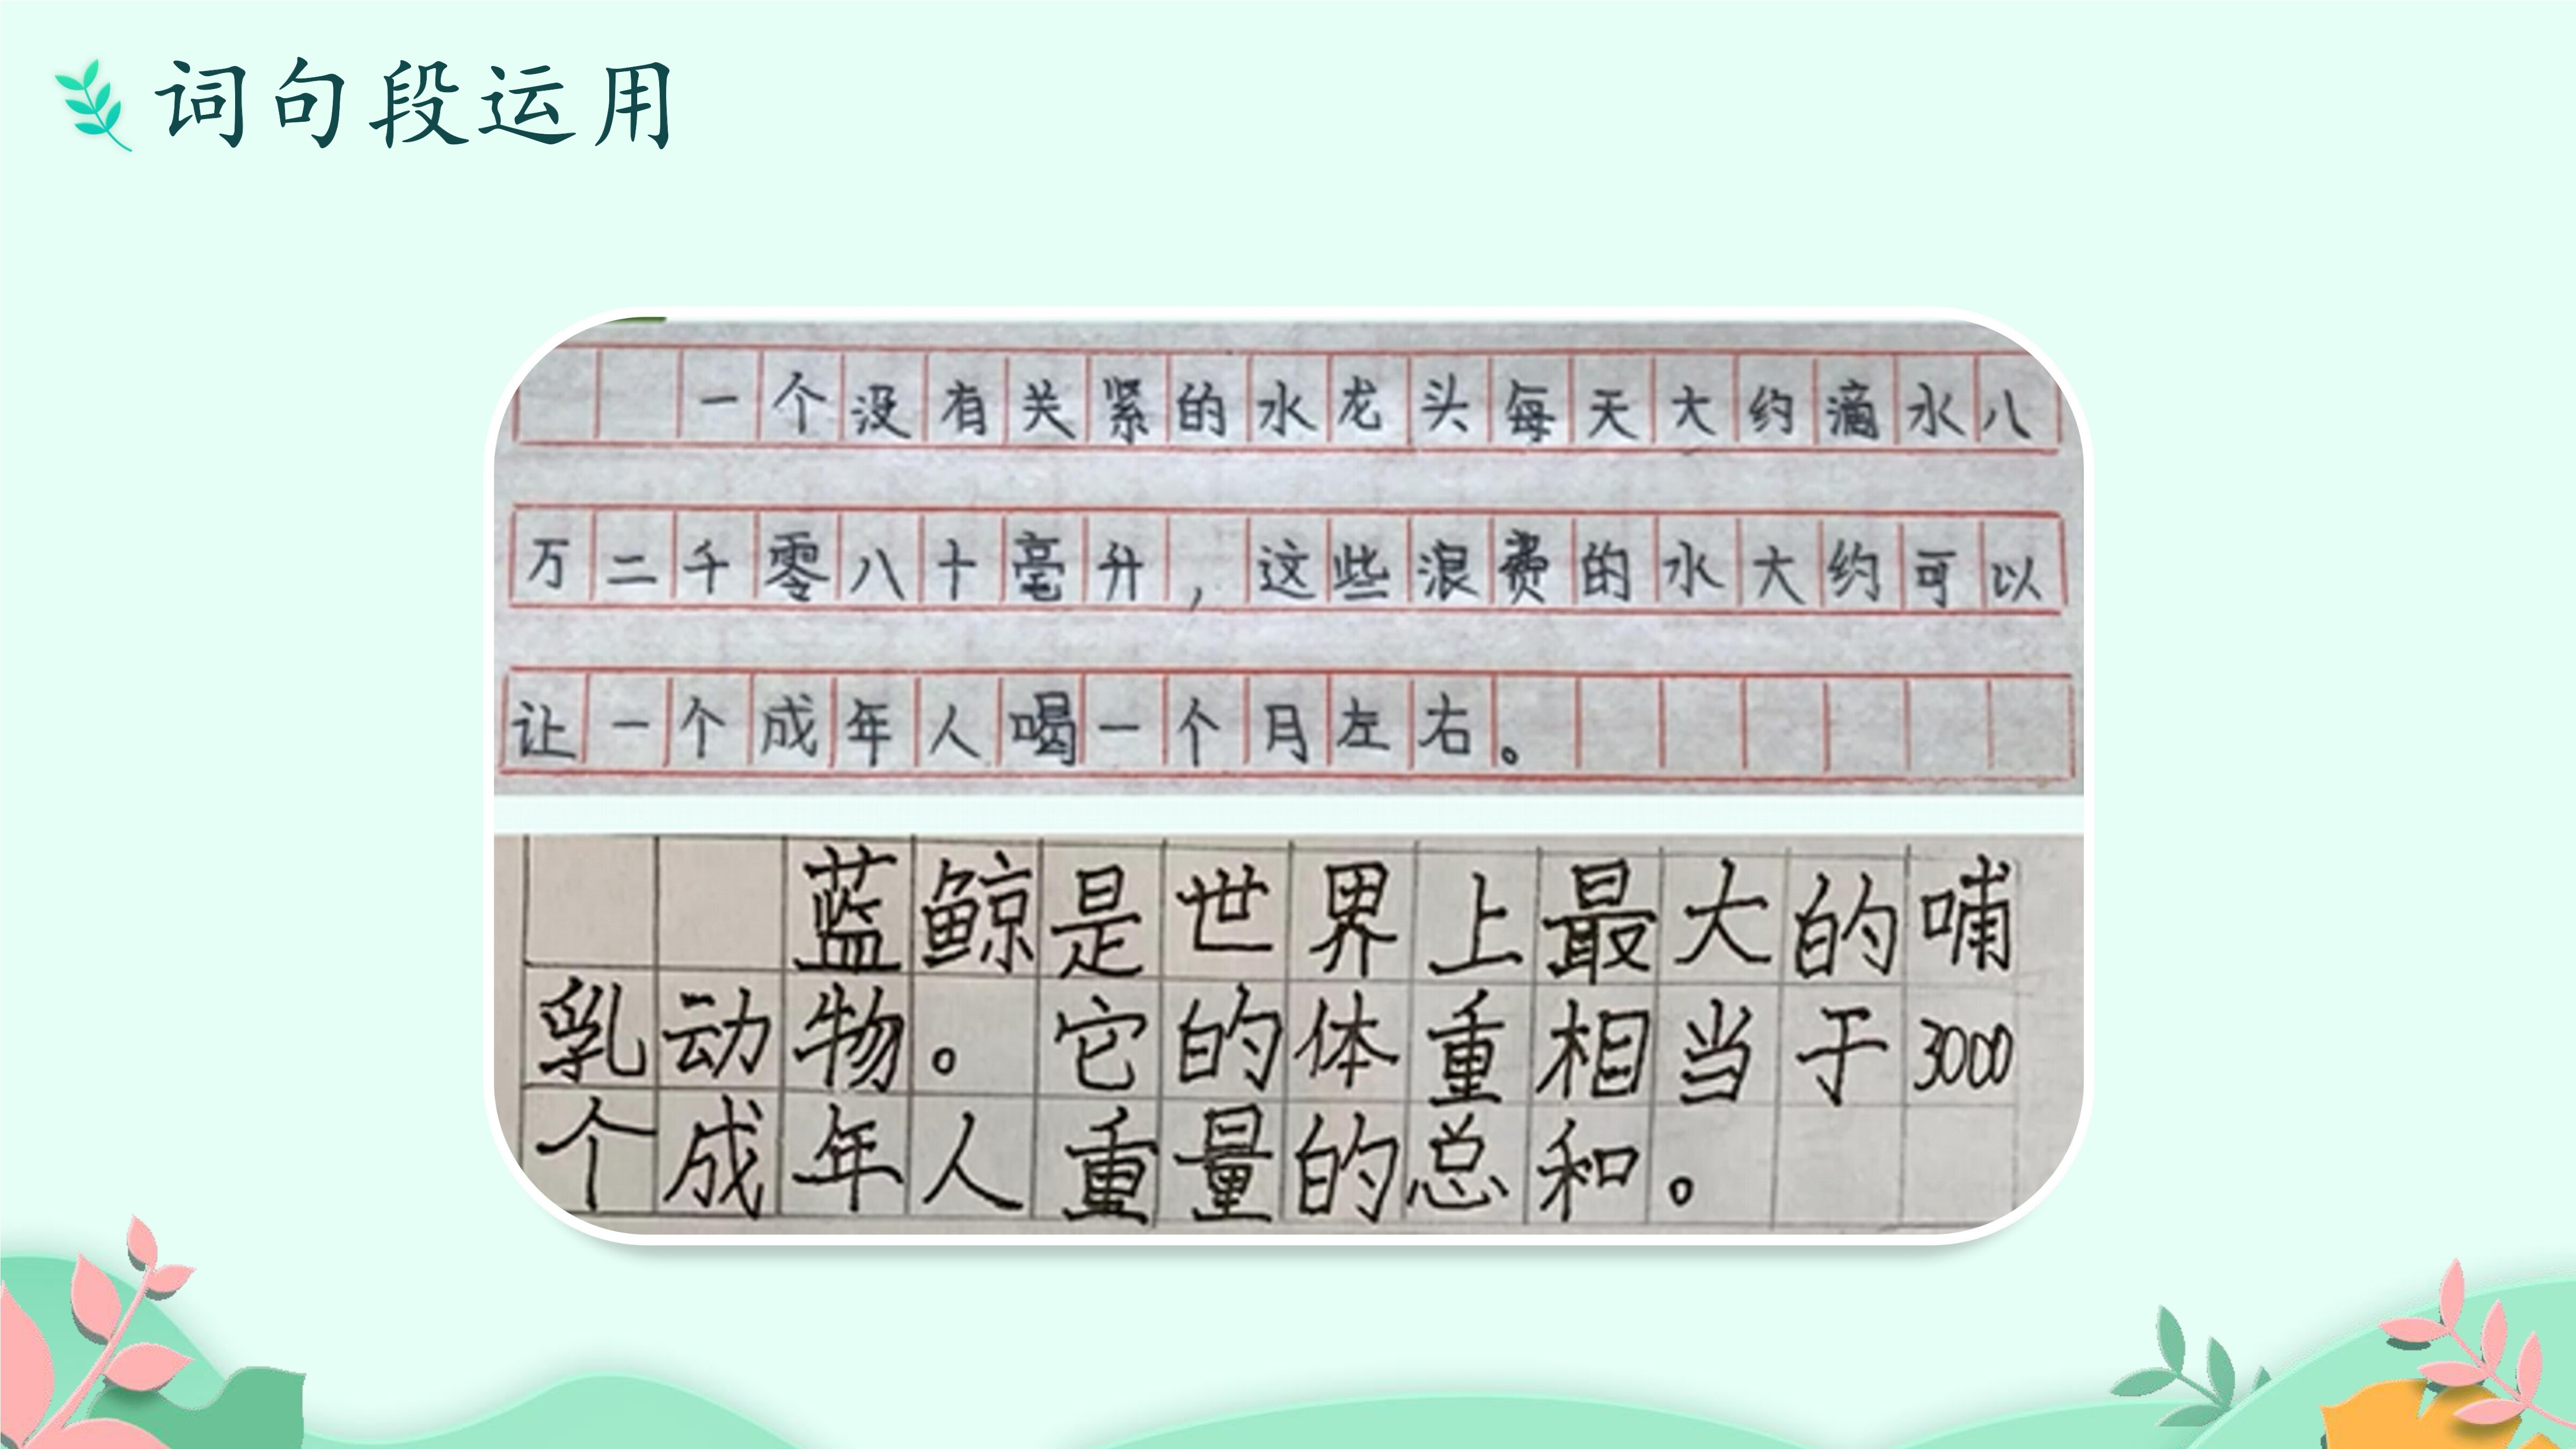 词句段运用
一个没有关紧的水龙头每天大约滴水八
万二千零八十毫升，这些浪费的水大约可以
让一个成年人喝一个月左右。
蓝鲸是世界上最大的哺
乳动物。它的体重相当于3000
个成年人重量的总和。